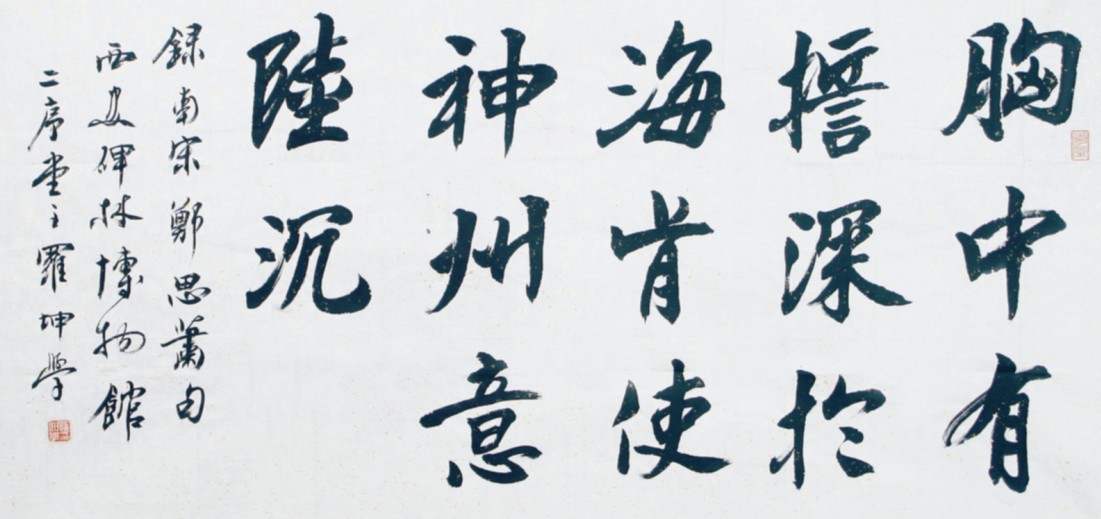 胸中有
誓深於
海肯使
神州意
陸沉
録南宋鄭思蕭句
西安碑林博物館
二序堂主羅坤學